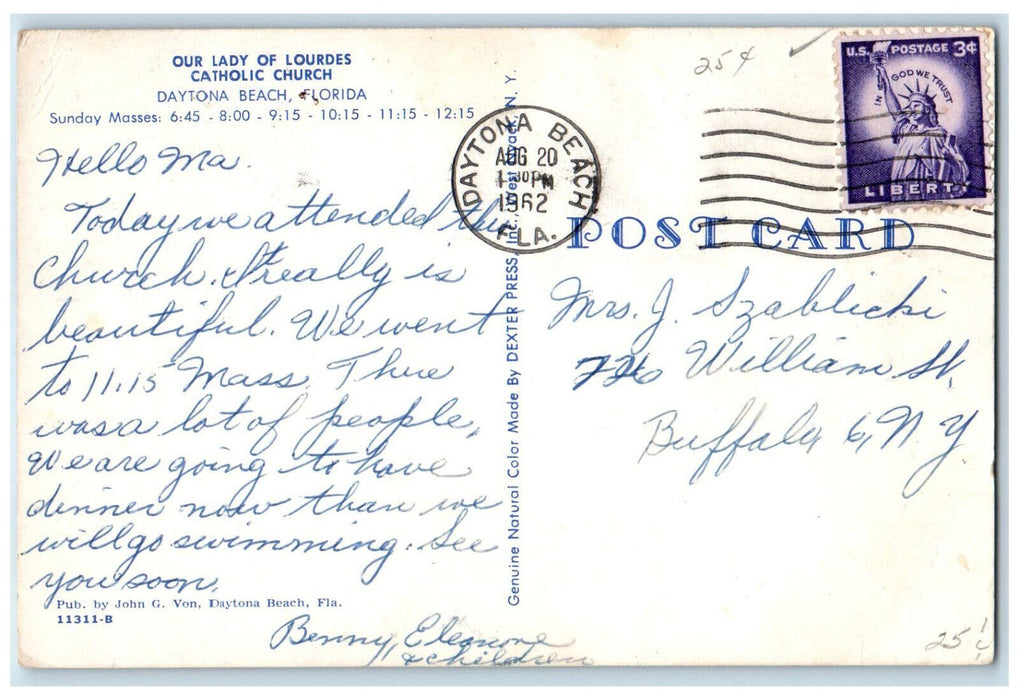 OUR LADY OF LOURDES
CATHOLIC CHURCH
DAYTONA BEACH, FLORIDA
Sunday Masses: 6:45 - 8:00 - 9:15 - 10:15 - 11:15 - 12:15
Hello Ma.
Today we attended this
church. It really is
beautiful. We went
to 11:15 Mass. There
was a lot of people.
We are going to have
dinner now than we
will go swimming. See
you soon.
Pub. by John G. Von, Daytona Beach, Fla.
11311-B
Benny, Eleanore
& children
Genuine Natural Color Made By DEXTER PRESS, Inc., West Nyack, N. Y.
DAYTONA BEACH
AUG 20
1962
FLA.
25¢
U.S. POSTAGE 3¢
IN GOD WE TRUST
LIBERTY
POST CARD
Mrs. J. Szablicki
726 William St.
Buffalo, 6, N. Y
25